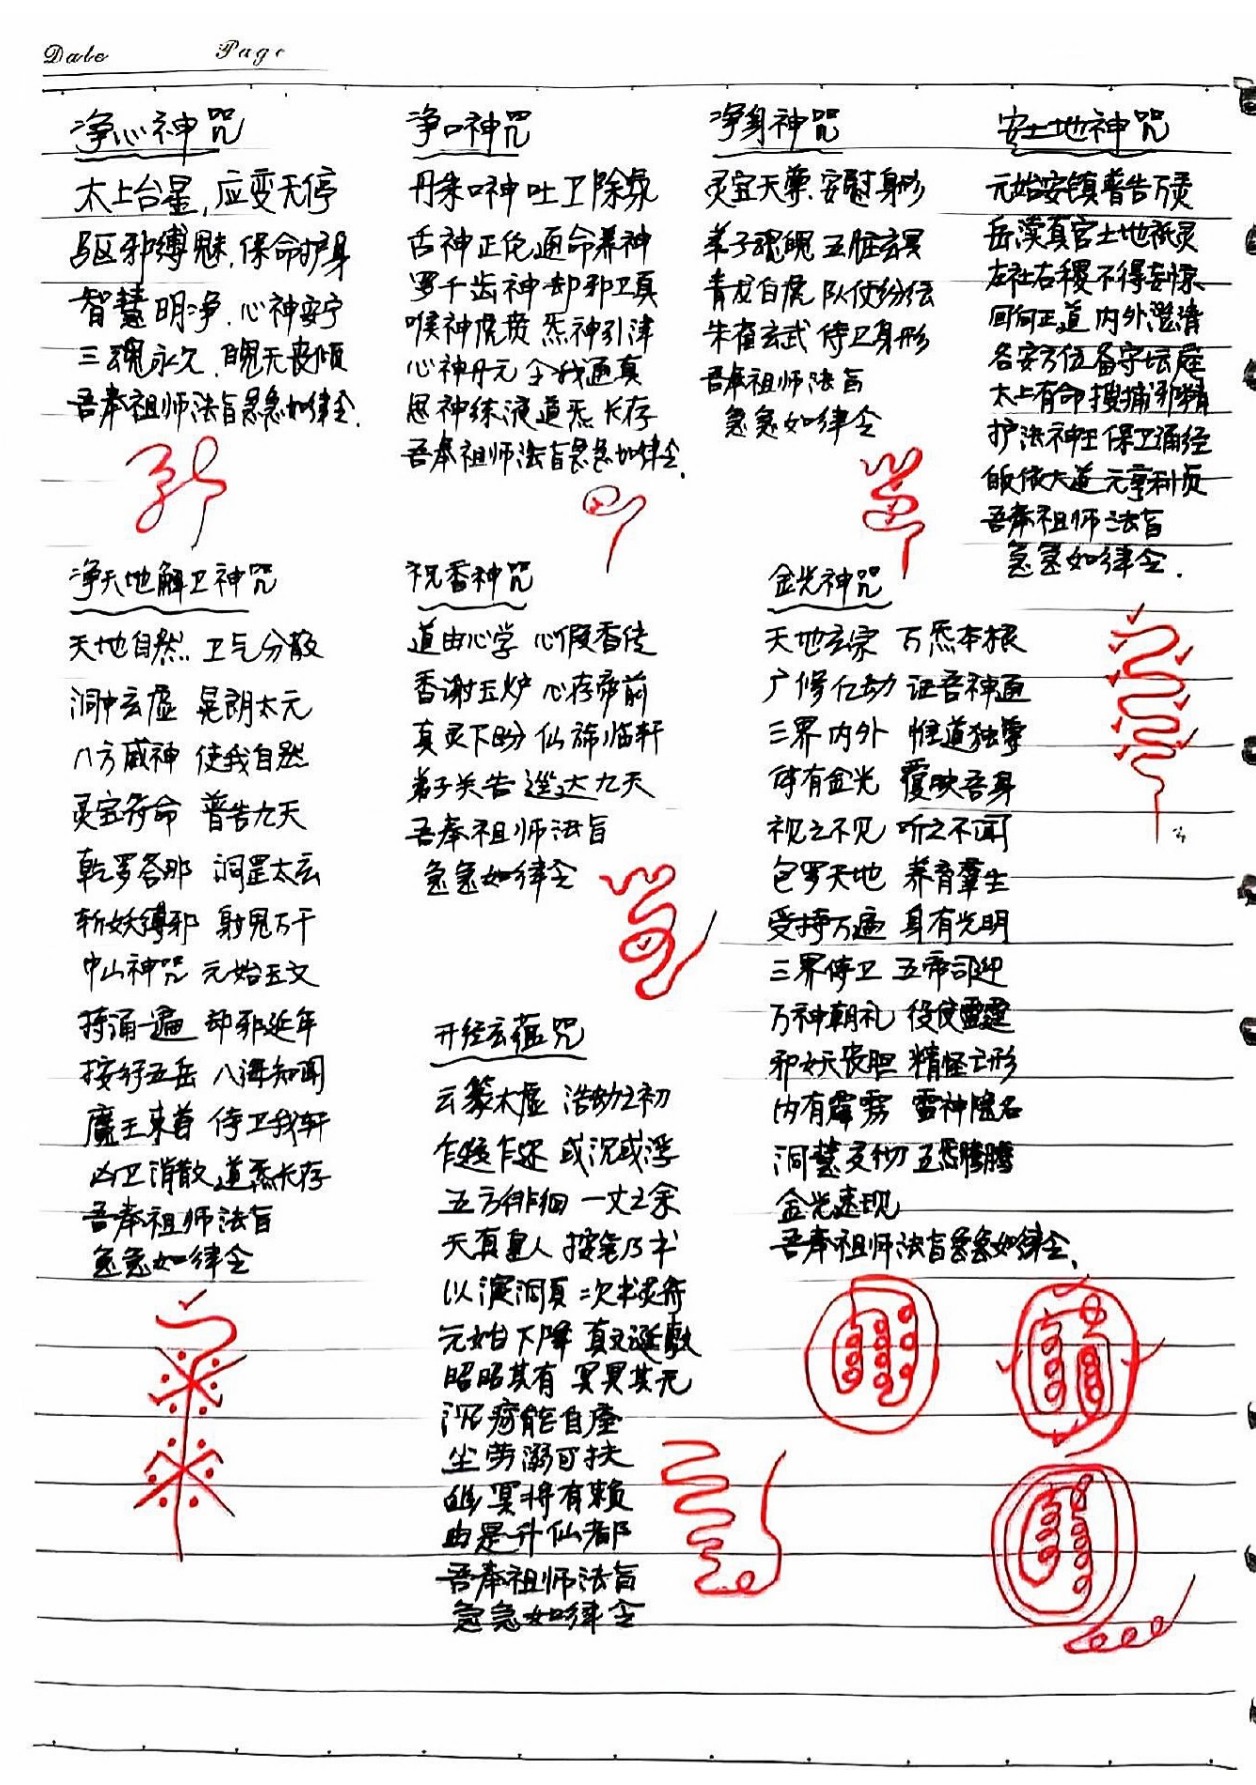 Date Page
净心神咒
太上台星,应变无停
驱邪缚魅,保命护身
智慧明净,心神安宁
三魂永久,魄无丧倾
吾奉祖师法旨急急如律令.
净口神咒
丹朱口神 吐卫除氛
舌神正伦 通命养神
罗千齿神 却邪卫真
喉神虎贲 炁神引津
心神丹元 令我通真
思神练液 道炁长存
吾奉祖师法旨急急如律令.
净身神咒
灵宝天尊 安慰身形
弟子魂魄 五脏玄冥
青龙白虎 队仗纷纭
朱雀玄武 侍卫身形
吾奉祖师法旨
急急如律令
安土地神咒
元始安镇 普告万灵
岳渎真官 土地祇灵
左社右稷 不得妄惊
回向正道 内外澄清
各安方位 备守坛庭
太上有命 搜捕邪精
护法神王 保卫诵经
皈依大道 元亨利贞
吾奉祖师法旨
急急如律令.
净天地解卫神咒
天地自然.. 卫气分散
洞中玄虚 晃朗太元
八方威神 使我自然
灵宝符命 普告九天
乾罗答那 洞罡太玄
斩妖缚邪 射鬼万千
中山神咒 元始玉文
持诵一遍 却邪延年
按行五岳 八海知闻
魔王束首 侍卫我轩
凶卫消散 道炁长存
吾奉祖师法旨
急急如律令
祝香神咒
道由心学 心假香传
香谢玉炉 心存帝前
真灵下盼 仙旆临轩
弟子关告 迳达九天
吾奉祖师法旨
急急如律令
开经玄蕴咒
云篆太虚 浩劫之初
乍遐乍迩 或沉或浮
五方徘徊 一丈之余
天真皇人 按笔乃书
以演洞真 次书灵符
元始下降 真文诞敷
昭昭其有 冥冥其无
沉疴能自痊
尘劳溺可扶
幽冥将有赖
由是升仙都
吾奉祖师法旨
急急如律令
金光神咒
天地玄宗 万炁本根
广修亿劫 证吾神通
三界内外 惟道独尊
体有金光 覆映吾身
视之不见 听之不闻
包罗天地 养育群生
受持万遍 身有光明
三界侍卫 五帝司迎
万神朝礼 役使雷霆
邪妖丧胆 精怪亡形
内有霹雳 雷神隐名
洞慧交彻 五炁腾腾
金光速现
吾奉祖师法旨急急如律令.